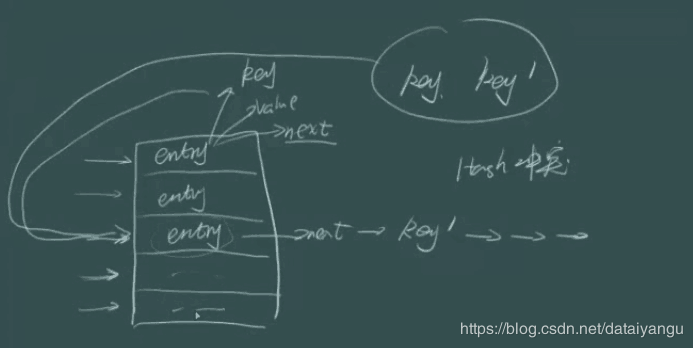 key
value
next
key key'
entry
Hash 冲突
entry
entry next key'
https://blog.csdn.net/dataiyangu